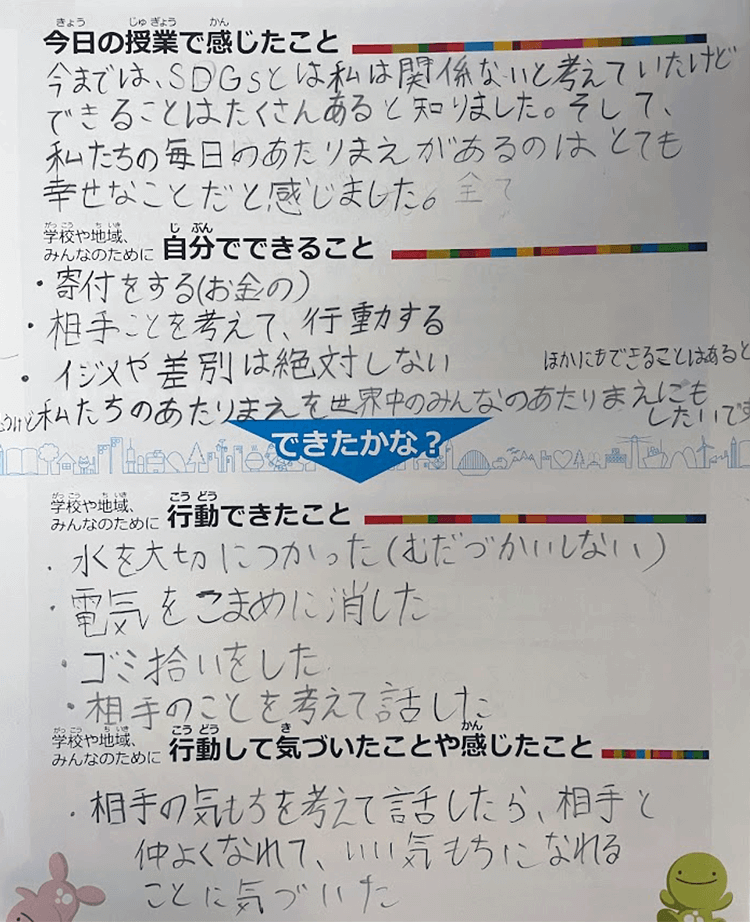 今日の授業で感じたこと
今までは、SDGsとは私は関係ないと考えていたけど
できることはたくさんあると知りました。そして、
私たちの毎日のあたりまえがあるのはとても
幸せなことだと感じました。全て
学校や地域、
みんなのために 自分でできること
・寄付をする(お金の)
・相手ことを考えて、行動する
・イジメや差別は絶対しない
ほかにもできることはあると
うけど私たちのあたりまえを世界中のみんなのあたりまえにも
したいです
できたかな？
学校や地域、
みんなのために 行動できたこと
・水を大切につかった(むだづかいしない)
・電気をこまめに消した
・ゴミ拾いをした
・相手のことを考えて話した
学校や地域、
みんなのために 行動して気づいたことや感じたこと
・相手の気もちを考えて話したら、相手と
仲よくなれて、いい気もちになれる
ことに気づいた